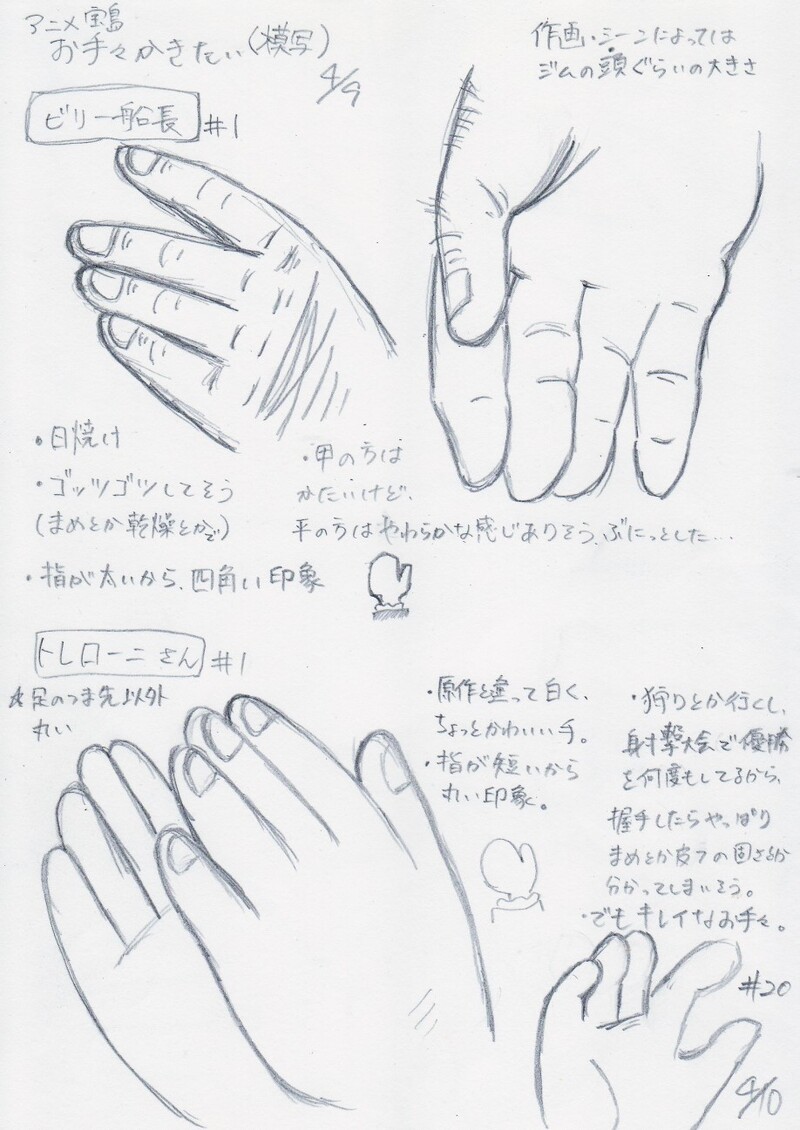 アニメ宝島
お手々かきたい(模写)
4/9
作画・シーンによっては
ジムの頭ぐらいの大きさ
ビリー船長 #1
・日焼け
・ゴッツゴツしてそう
(まめとか乾燥とかで)
・指が太いから、四角い印象
・甲の方は
かたいけど、
平の方はやわらかな感じありそう、ぷにっとした…
トレローニさん #1
足のつま先以外
丸い
・原作と違って白く、
ちょっとかわいい手。
・指が短いから
丸い印象。
・狩りとか行くし、
射撃大会で優勝
を何度もしてるから、
握手したらやっぱり
まめとか皮フの固さとか
分かってしまいそう。
・でもキレイなお手々。
#20
4/10